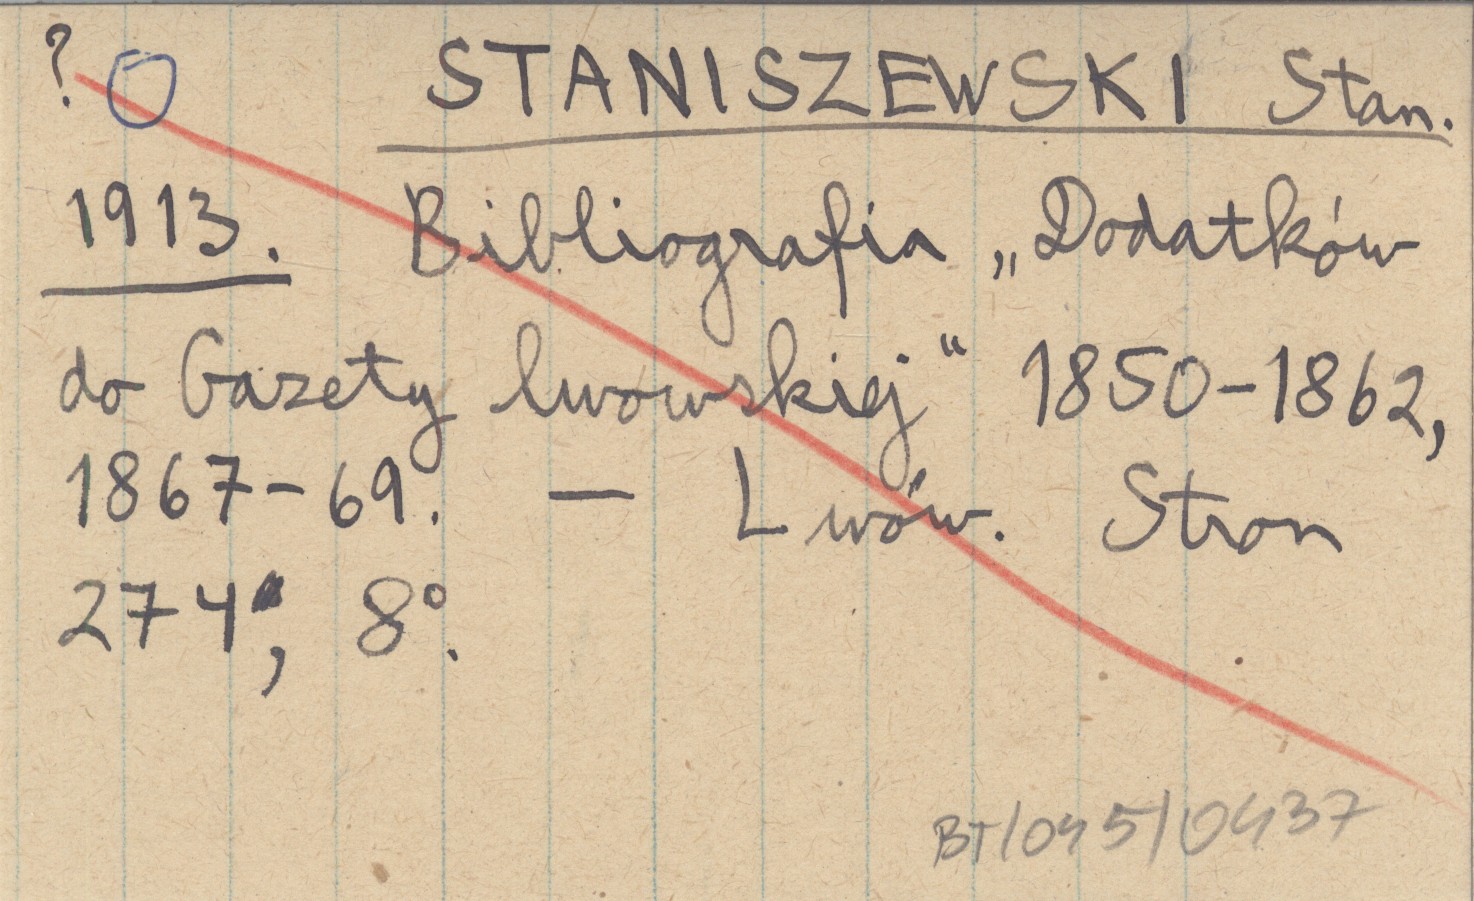 ? O STANISZEWSKI Stan.
1913. Bibliografia „Dodatków
do Gazety lwowskiej“ 1850-1862,
1867-69. — Lwów. Stron
274, 8°.
BT/045/0437